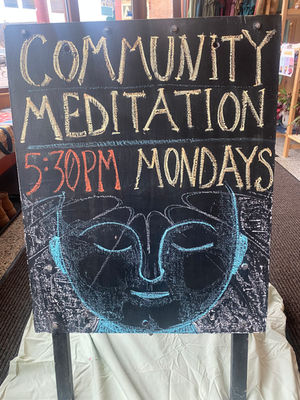 COMMUNITY
MEDITATION
5:30PM MONDAYS